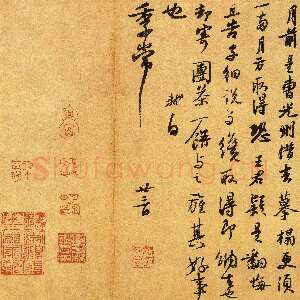 月前是曹光州借去摹搨更須
一兩月方取得恐王君疑是翻悔
且告子細說与纔取得即納去也
却寄團茶一餅与之旌其好事
也 軾白
季常
廿三日
Shufawang.cn